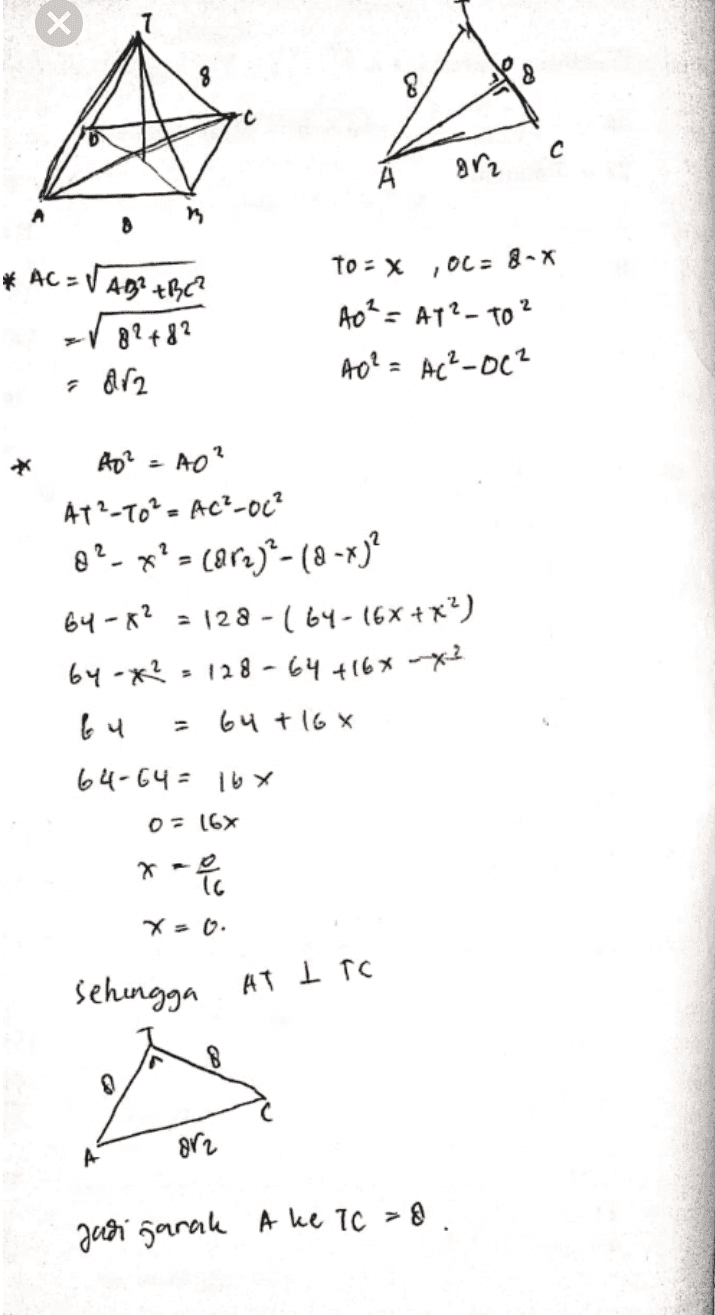 T
8
D
C
A
8
B
T
8
O
8
A
8√2
C
* AC = √AB² + BC²
= √8² + 8²
= 8√2
TO = x , OC = 8-x
AO² = AT² - TO²
AO² = AC² - OC²
* AO² = AO²
AT² - TO² = AC² - OC²
8² - x² = (8√2)² - (8-x)²
64 - x² = 128 - (64 - 16x + x²)
64 - x² = 128 - 64 + 16x - x²
64 = 64 + 16x
64 - 64 = 16x
0 = 16x
x = 0/16
x = 0.
Sehingga AT ⊥ TC
T
8
8
C
A
8√2
Jadi jarak A ke TC = 8.